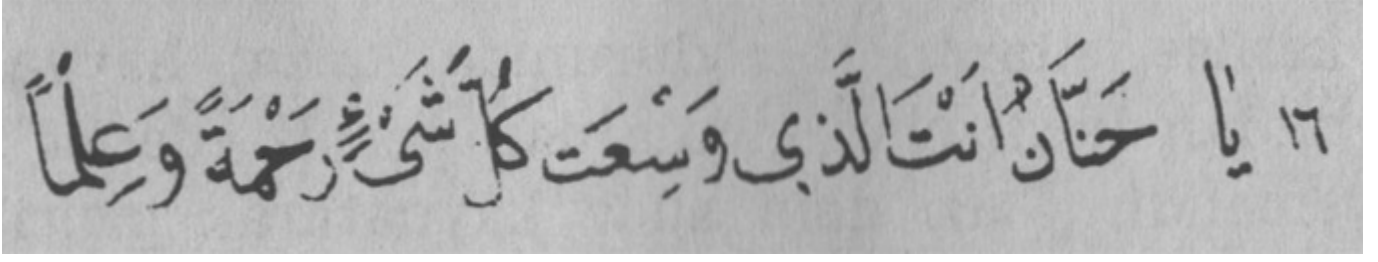 ١٦ يَا حَنَّانُ اَنْتَ الَّذِي وَسِعَت كُلَّ شَىْءٍ رَحْمَةً وَعِلْماً